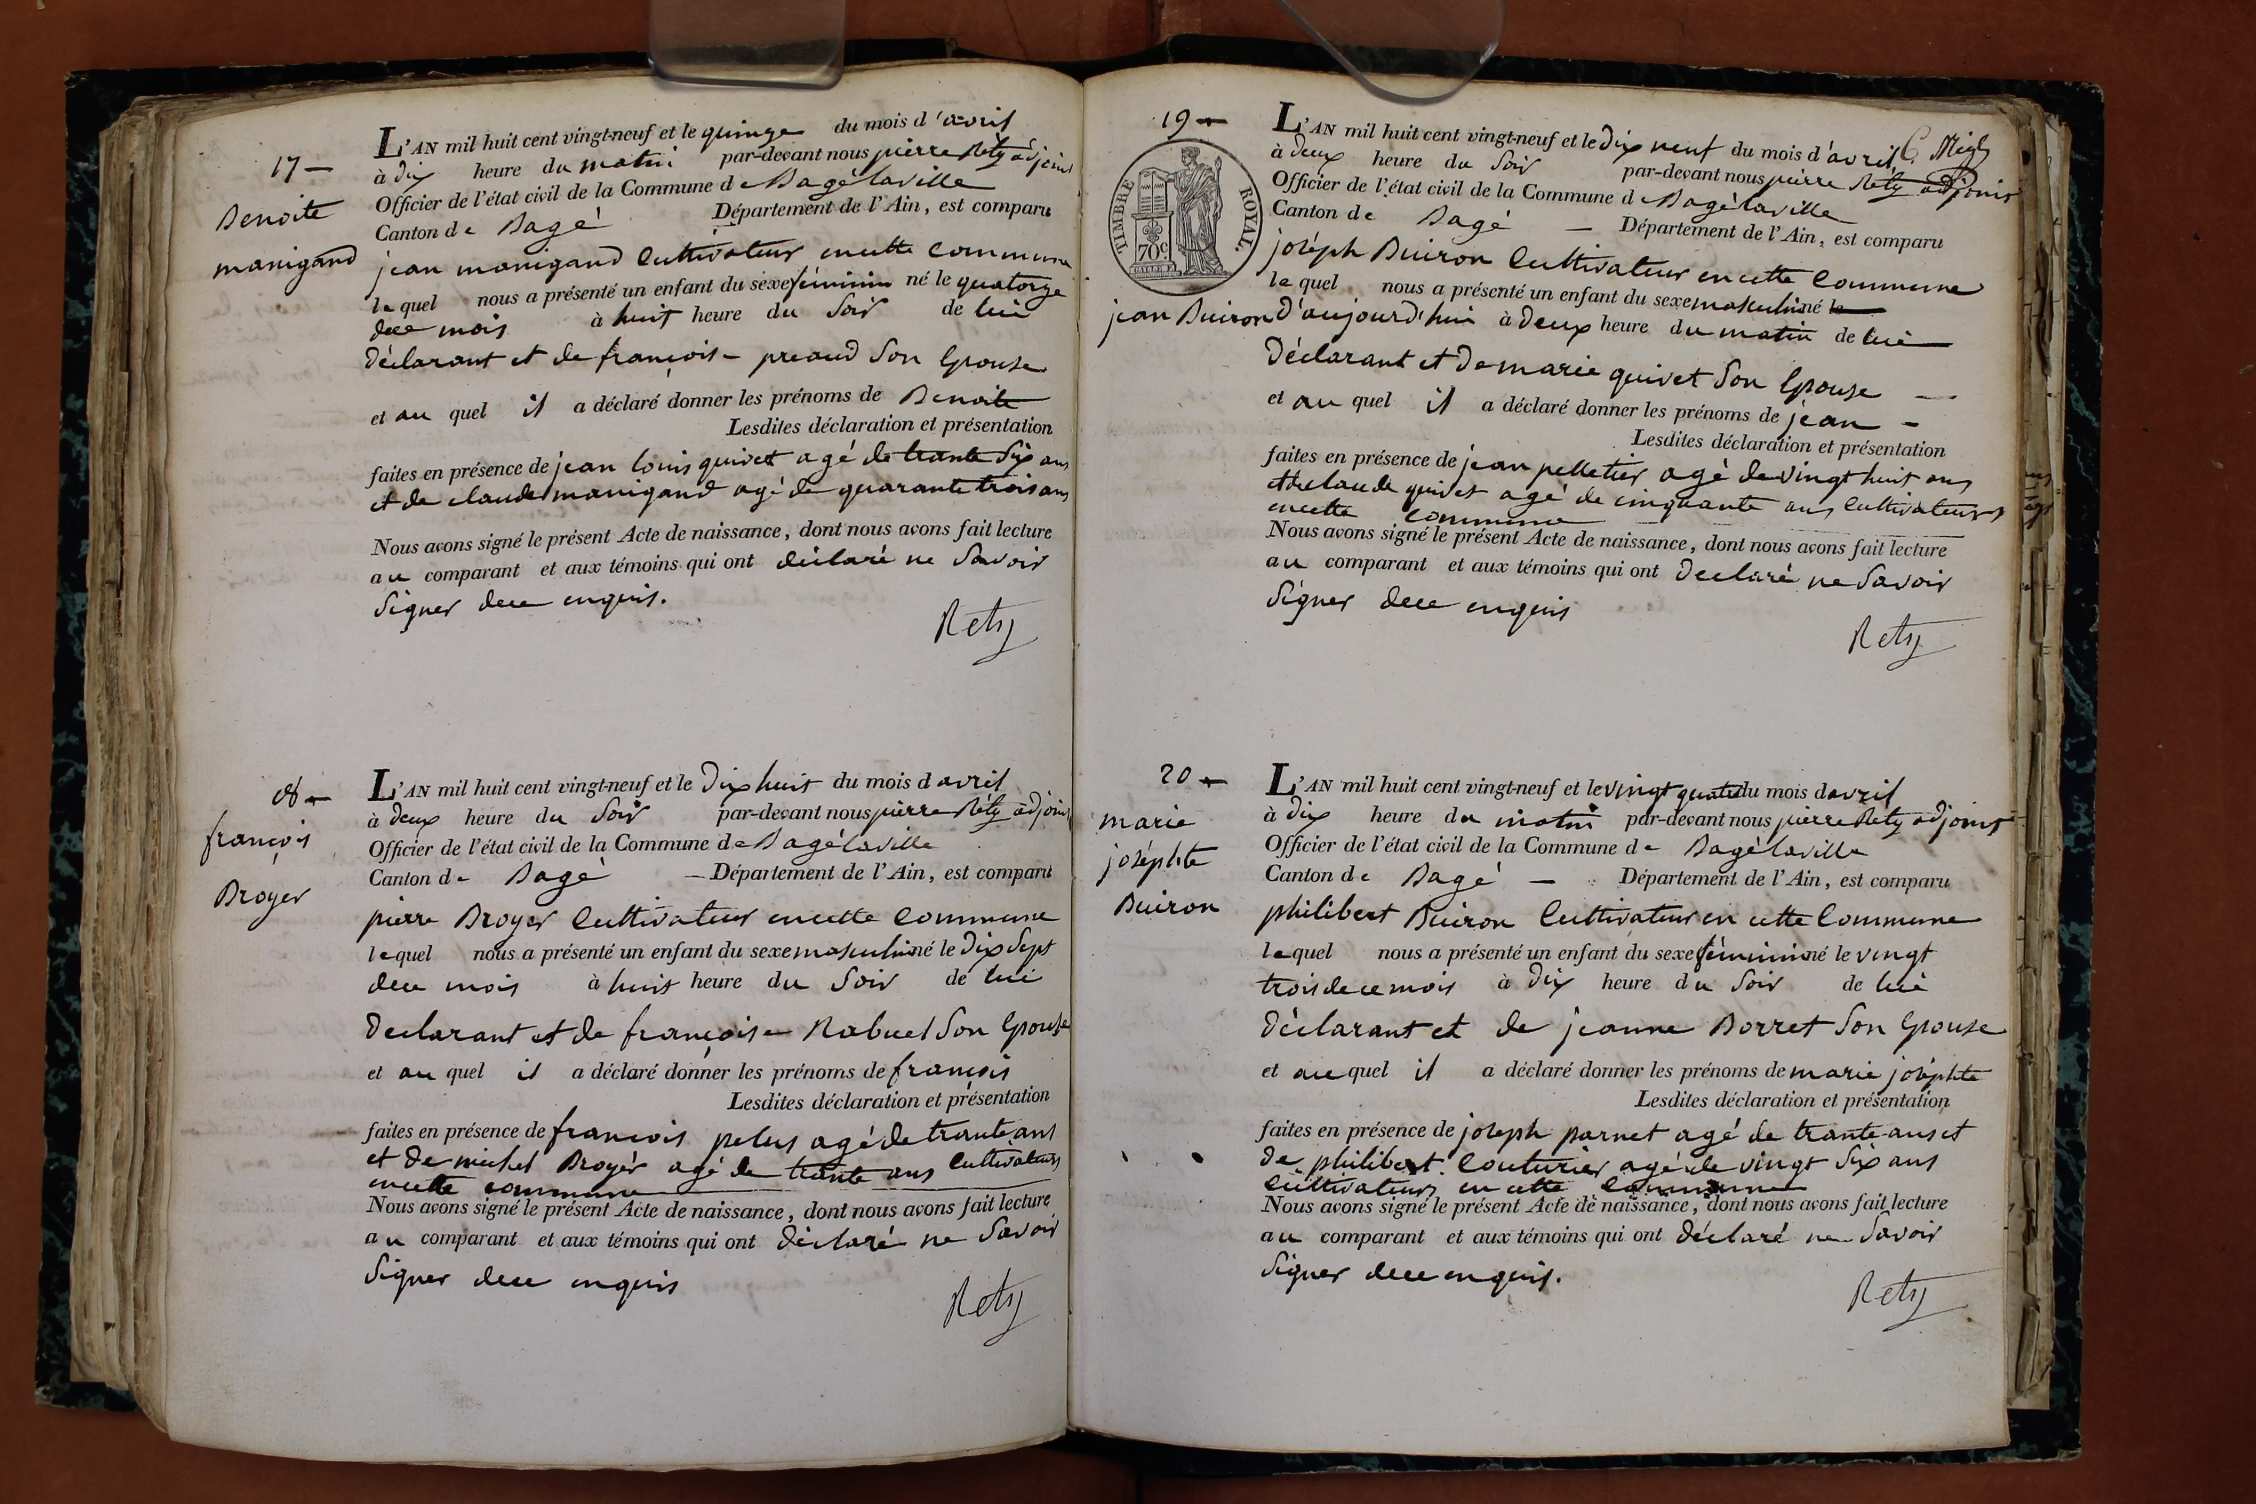 17 —
Benoite
manigand
L'AN mil huit cent vingt-neuf et le quinze du mois d'avril
à dix heure du matin par-devant nous pierre Réty adjoint
Officier de l'état civil de la Commune de Bagélaville
Canton de Bagé Département de l'Ain, est comparu
jean manigand Cultivateur encette Commune
lequel nous a présenté un enfant du sexe féminin né le quatorze
dece mois à huit heure du Soir de lui
Déclarant et de françoise preaud Son Epouse
et au quel il a déclaré donner les prénoms de Benoite
Lesdites déclaration et présentation
faites en présence de jean louis quivet agé de trante Six ans
et de claude manigand agé de quarante trois ans
Nous avons signé le présent Acte de naissance, dont nous avons fait lecture
au comparant et aux témoins qui ont déclaré ne Savoir
Signer dece enquis.
Rety
18 —
françois
Broyer
L'AN mil huit cent vingt-neuf et le Dix huit du mois d avril
à Deux heure du Soir par-devant nous pierre Réty adjoint
Officier de l'état civil de la Commune de Bagélaville
Canton de Bagé — Département de l'Ain, est comparu
pierre Broyer Cultivateur encette Commune
lequel nous a présenté un enfant du sexe masculin né le Dix Sept
dece mois à huit heure du Soir de lui
Declarant et de françoise Rabuel Son Epouse
et au quel il a déclaré donner les prénoms de françois
Lesdites déclaration et présentation
faites en présence de françois pelus agé de trante ans
et de michel Broyer agé de trante ans Cultivateurs
encette commune
Nous avons signé le présent Acte de naissance, dont nous avons fait lecture
au comparant et aux témoins qui ont déclaré ne Savoir
Signer dece enquis
Rety
19 —
TIMBRE ROYAL.
70c.
jean Buiron
L'AN mil huit cent vingt-neuf et le Dix neuf du mois d'avril
à Deux heure du Soir par-devant nous pierre Réty adjoint
Officier de l'état civil de la Commune de Bagélaville
Canton de Bagé — Département de l'Ain, est comparu
joséph Buiron Cultivateur en cette Commune
lequel nous a présenté un enfant du sexe masculin né le
D'aujourd'hui à Deux heure du matin de lui
Déclarant et De marie quivet Son Epouse —
et au quel il a déclaré donner les prénoms de jean —
Lesdites déclaration et présentation
faites en présence de jean pelletier agé de vingt huit ans
et de claude quivet agé de cinquante ans Cultivateurs
encette commune
Nous avons signé le présent Acte de naissance, dont nous avons fait lecture
au comparant et aux témoins qui ont declaré ne Savoir
Signer dece enquis
Rety
20 —
marie
joséphte
Buiron
L'AN mil huit cent vingt-neuf et le vingt quatre du mois d avril
à Dix heure du matin par-devant nous pierre Rety adjoint
Officier de l'état civil de la Commune de Bagélaville
Canton de Bagé — Département de l'Ain, est comparu
philibert Buiron Cultivateur en cette Commune
lequel nous a présenté un enfant du sexe féminin né le vingt
trois de ce mois à Dix heure du Soir de lui
Déclarant et de jeanne Borret Son Epouse
et au quel il a déclaré donner les prénoms de marie joséphte
Lesdites déclaration et présentation
faites en présence de joseph parnet agé de trante ans et
De philibert Couturier agé de vingt Six ans
Cultivateurs en cette Commune
Nous avons signé le présent Acte de naissance, dont nous avons fait lecture
au comparant et aux témoins qui ont déclaré ne Savoir
Signer dece enquis.
Rety